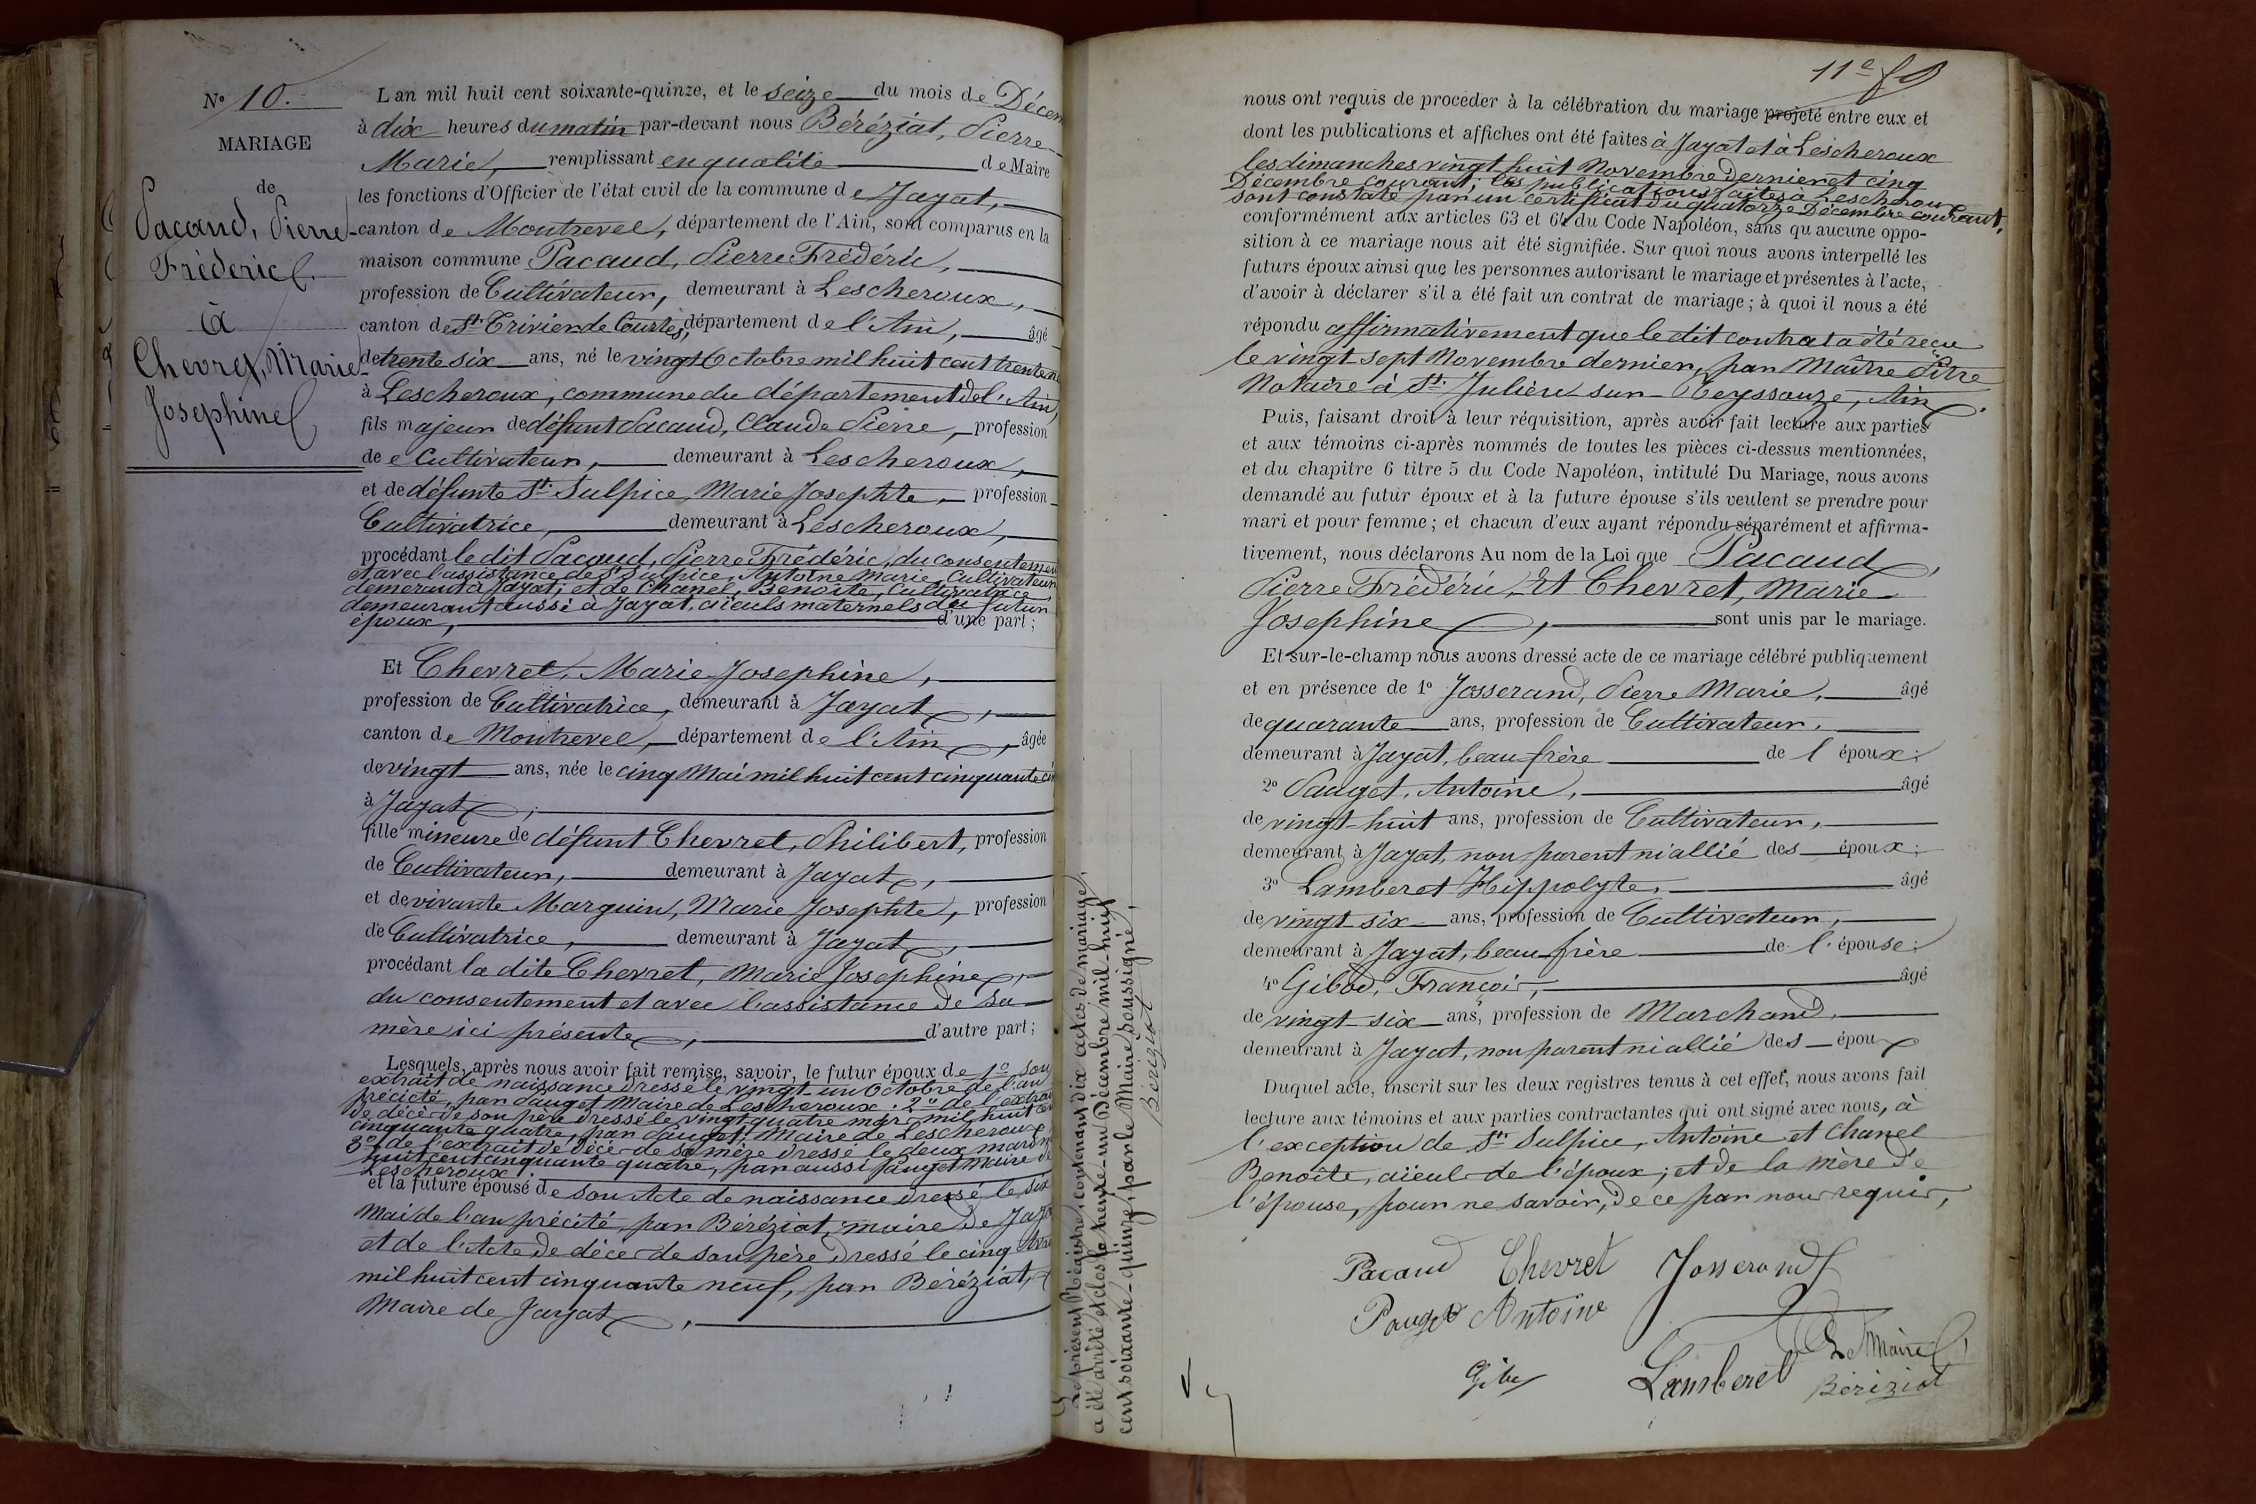 N° 10.
MARIAGE
de
Pacaud, Pierre
Fréderic
à
Chevret, Marie
Josephine
L'an mil huit cent soixante-quinze, et le seize du mois de Décem
à dix heures du matin par-devant nous Béréziat, Pierre
Marie, remplissant en qualité de Maire
les fonctions d'Officier de l'état civil de la commune de Jayat,
canton de Montrevel, département de l'Ain, sont comparus en la
maison commune Pacaud, Pierre Frédéric,
profession de Cultivateur, demeurant à Lescheroux,
canton de St. Trivier de Courtes, département de l'Ain, âgé
de trente six ans, né le vingt Octobre mil huit cent trente ne
à Lescheroux, commune du département de l'Ain,
fils majeur de défunt Pacaud, Claude Pierre, profession
de Cultivateur, demeurant à Lescheroux,
et de défunte St. Sulpice, Marie Josephte, profession
Cultivatrice, demeurant à Lescheroux,
procédant le dit Pacaud, Pierre Frédéric, du consentemen
et avec l'assistance de St. Sulpice, Antoine Marie, Cultivateur
demeurant à Jayat, et de Chanel, Benoîte, Cultivatrice,
demeurant aussi à Jayat, aïeuls maternels du futur
époux, d'une part;
Et Chevret, Marie Josephine,
profession de Cultivatrice, demeurant à Jayat,
canton de Montrevel, département de l'Ain, âgée
de vingt ans, née le cinq Mai mil huit cent cinquante ci
à Jayat,
fille mineure de défunt Chevret, Philibert, profession
de Cultivateur, demeurant à Jayat,
et de vivante Marguin, Marie Josephte, profession
de Cultivatrice, demeurant à Jayat,
procédant la dite Chevret, Marie Josephine,
du consentement et avec l'assistance de sa
mère ici présente, d'autre part;
Lesquels, après nous avoir fait remise, savoir, le futur époux de 1° son
extrait de naissance dressé le vingt-un Octobre de l'an
précité, par Pauget Maire de Lescheroux. 2° de l'extrai
de décès de son père dressé le vingt-quatre mars mil huit cen
cinquante quatre, par Pauget, Maire de Lescheroux
3° de l'extrait de décès de sa mère dressé le deux mars m
huit cent cinquante quatre, par aussi Pauget maire de
Lescheroux.
et la future épouse de son Acte de naissance dressé le six
Mai de l'an précité, par Béréziat, maire de Jaya
et de l'Acte de décès de son père, dressé le cinq Avri
mil huit cent cinquante neuf, par Béréziat,
Maire de Jayat,
Le présent Registre, contenant dix actes de mariage,
a été arrêté et clos le trente-un Décembre mil-huit
cent soixante-quinze, par le Maire soussigné,
Béréziat
11e
nous ont requis de procéder à la célébration du mariage projeté entre eux et
dont les publications et affiches ont été faites à Jayat et à Lescheroux
les dimanches vingt huit Novembre dernier et cinq
Décembre courant; les publications faites à Lescheroux
sont constaté par un certificat du quatorze Décembre courant,
conformément aux articles 63 et 64 du Code Napoléon, sans qu'aucune oppo-
sition à ce mariage nous ait été signifiée. Sur quoi nous avons interpellé les
futurs époux ainsi que les personnes autorisant le mariage et présentes à l'acte,
d'avoir à déclarer s'il a été fait un contrat de mariage; à quoi il nous a été
répondu affirmativement que le dit contrat a été reçu
le vingt-sept Novembre dernier, par Maître Pitre
Notaire à St. Julien sur-Reyssouze, Ain.
Puis, faisant droit à leur réquisition, après avoir fait lecture aux parties
et aux témoins ci-après nommés de toutes les pièces ci-dessus mentionnées,
et du chapitre 6 titre 5 du Code Napoléon, intitulé Du Mariage, nous avons
demandé au futur époux et à la future épouse s'ils veulent se prendre pour
mari et pour femme; et chacun d'eux ayant répondu séparément et affirma-
tivement, nous déclarons Au nom de la Loi que Pacaud,
Pierre Frédéric, Et Chevret, Marie
Josephine, sont unis par le mariage.
Et sur-le-champ nous avons dressé acte de ce mariage célébré publiquement
et en présence de 1° Josserand, Pierre Marie, âgé
de quarante ans, profession de Cultivateur,
demeurant à Jayat, beau frère de l'époux;
2° Pauget, Antoine, âgé
de vingt-huit ans, profession de Cultivateur,
demeurant à Jayat, non parent ni allié des époux;
3° Lamberet Hippolyte, âgé
de vingt six ans, profession de Cultivateur,
demeurant à Jayat, beau frère de l'épouse;
4° Gibod, François, âgé
de vingt-six ans, profession de Marchand,
demeurant à Jayat, non parent ni allié des époux
Duquel acte, inscrit sur les deux registres tenus à cet effet, nous avons fait
lecture aux témoins et aux parties contractantes qui ont signé avec nous, à
l'exception de St. Sulpice, Antoine et Chanel
Benoîte, aïeuls de l'époux; et de la mère de
l'épouse, pour ne savoir, de ce par nous requis,
Pacaud Chevret Josserand
Pauget Antoine
Le Maire
Lamberet Béréziat